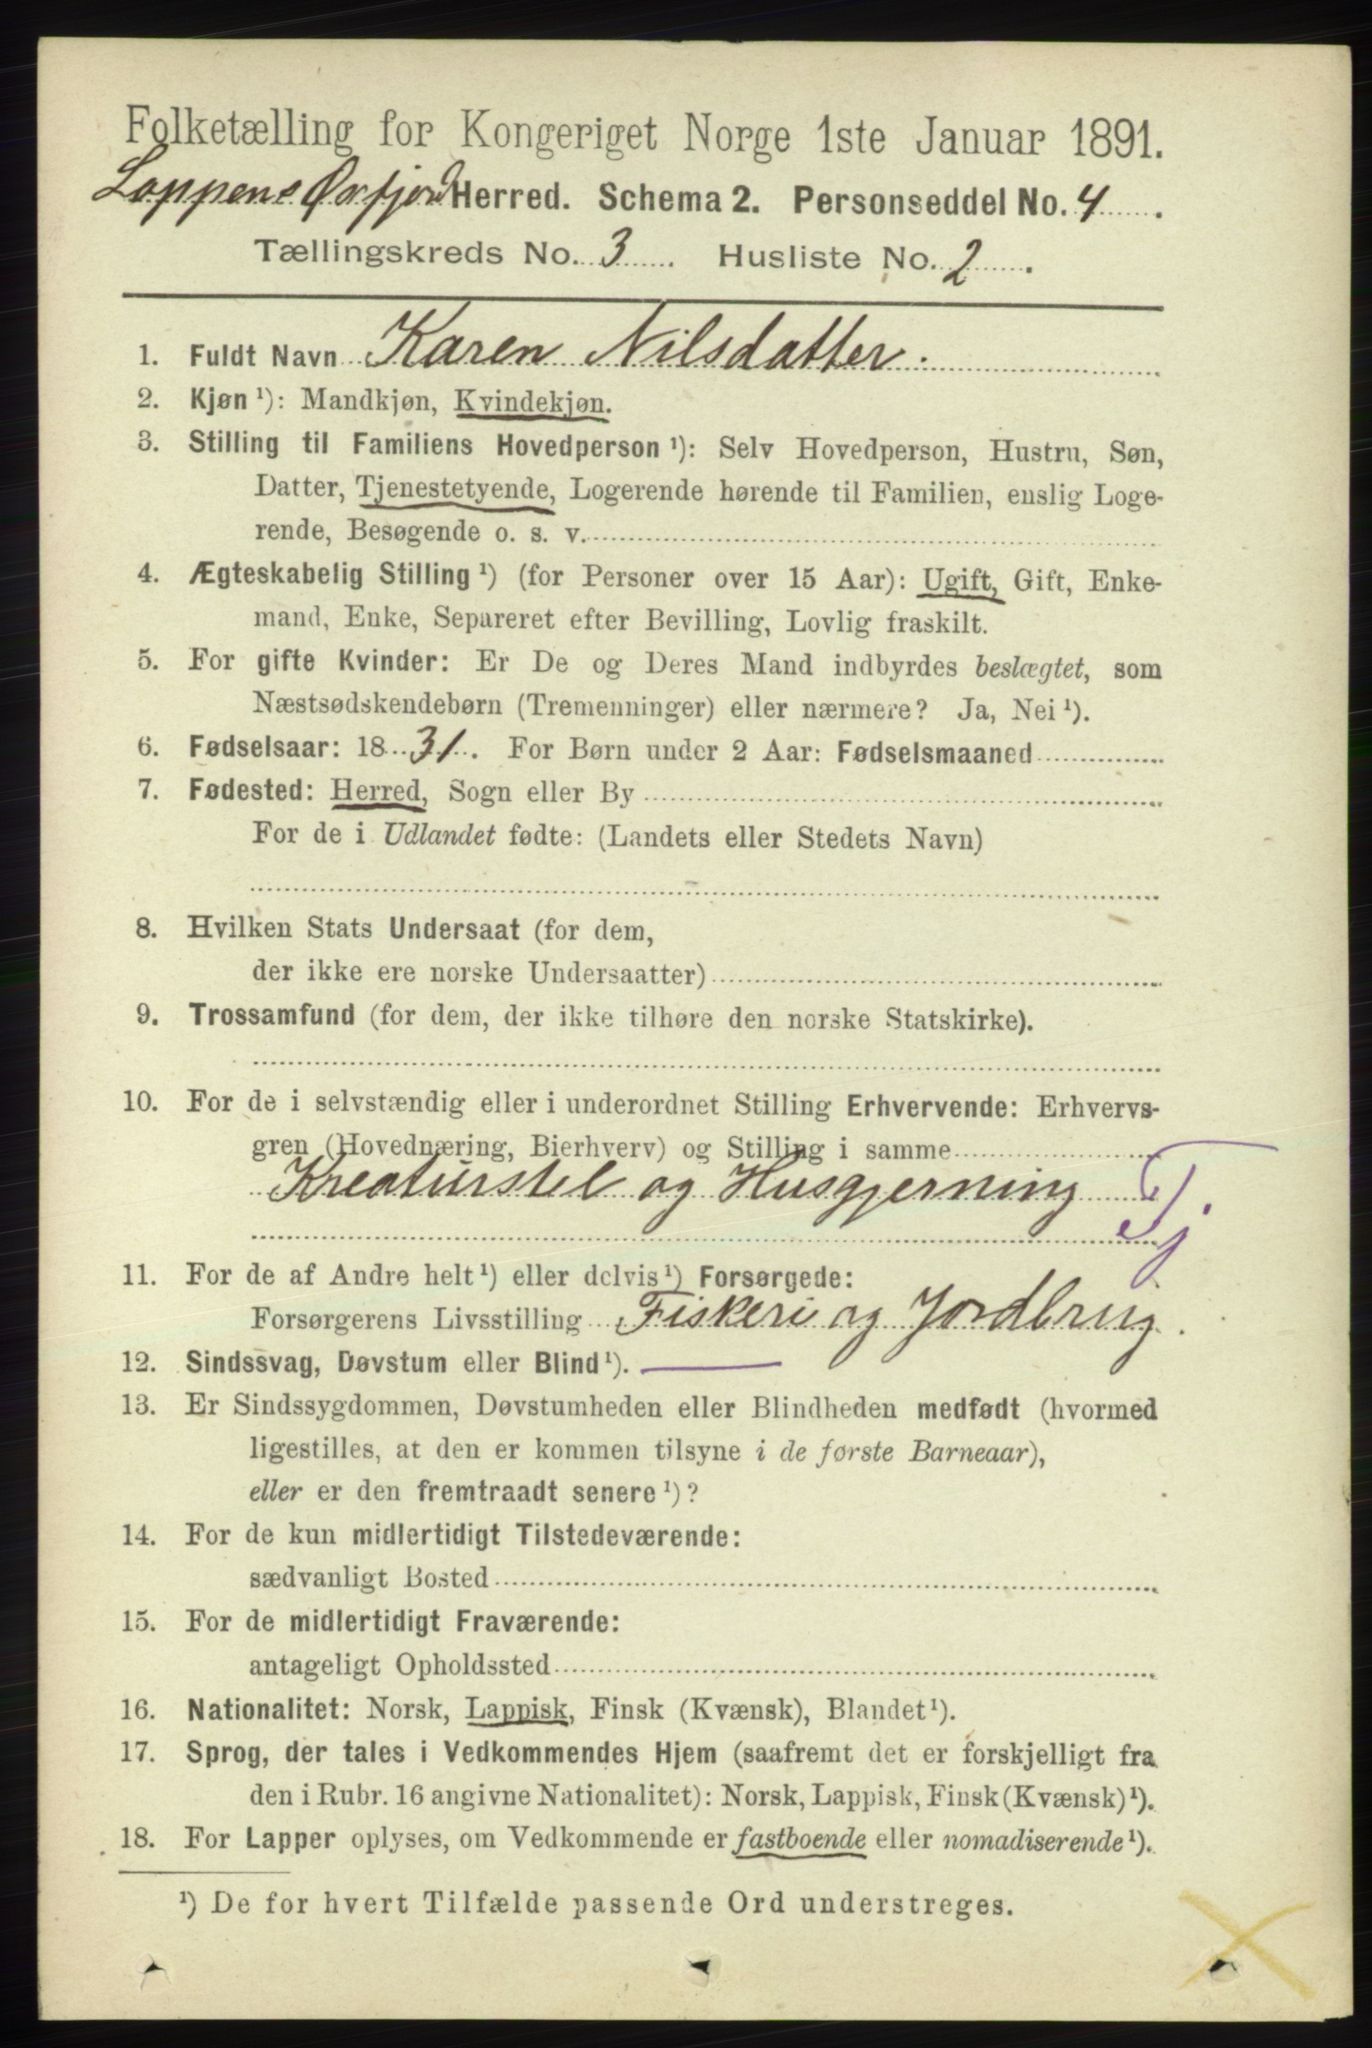 Folketælling for Kongeriget Norge 1ste Januar 1891.
Loppens Øxfjord Herred. Schema 2. Personseddel No. 4.
Tællingskreds No. 3. Husliste No. 2.
1. Fuldt Navn Karen Nilsdatter.
2. Kjøn ¹): Mandkjøn, Kvindekjøn.
3. Stilling til Familiens Hovedperson ¹): Selv Hovedperson, Hustru, Søn,
Datter, Tjenestetyende, Logerende hørende til Familien, enslig Loge-
rende, Besøgende o. s. v.
4. Ægteskabelig Stilling ¹) (for Personer over 15 Aar): Ugift, Gift, Enke-
mand, Enke, Separeret efter Bevilling, Lovlig fraskilt.
5. For gifte Kvinder: Er De og Deres Mand indbyrdes beslægtet, som
Næstsødskendebørn (Tremenninger) eller nærmere? Ja, Nei ¹).
6. Fødselsaar: 1831. For Børn under 2 Aar: Fødselsmaaned
7. Fødested: Herred, Sogn eller By
For de i Udlandet fødte: (Landets eller Stedets Navn)
8. Hvilken Stats Undersaat (for dem,
der ikke ere norske Undersaatter)
9. Trossamfund (for dem, der ikke tilhøre den norske Statskirke).
10. For de i selvstændig eller i underordnet Stilling Erhvervende: Erhvervs-
gren (Hovednæring, Bierhverv) og Stilling i samme
Kreaturstel og Husgjerning Tj
11. For de af Andre helt ¹) eller delvis ¹) Forsørgede:
Forsørgerens Livsstilling Fiskeri og Jordbrug.
12. Sindssvag, Døvstum eller Blind ¹).
13. Er Sindssygdommen, Døvstumheden eller Blindheden medfødt (hvormed
ligestilles, at den er kommen tilsyne i de første Barneaar),
eller er den fremtraadt senere ¹)?
14. For de kun midlertidigt Tilstedeværende:
sædvanligt Bosted
15. For de midlertidigt Fraværende:
antageligt Opholdssted
16. Nationalitet: Norsk, Lappisk, Finsk (Kvænsk), Blandet ¹).
17. Sprog, der tales i Vedkommendes Hjem (saafremt det er forskjelligt fra
den i Rubr. 16 angivne Nationalitet): Norsk, Lappisk, Finsk (Kvænsk) ¹).
18. For Lapper oplyses, om Vedkommende er fastboende eller nomadiserende ¹).
¹) De for hvert Tilfælde passende Ord understreges.